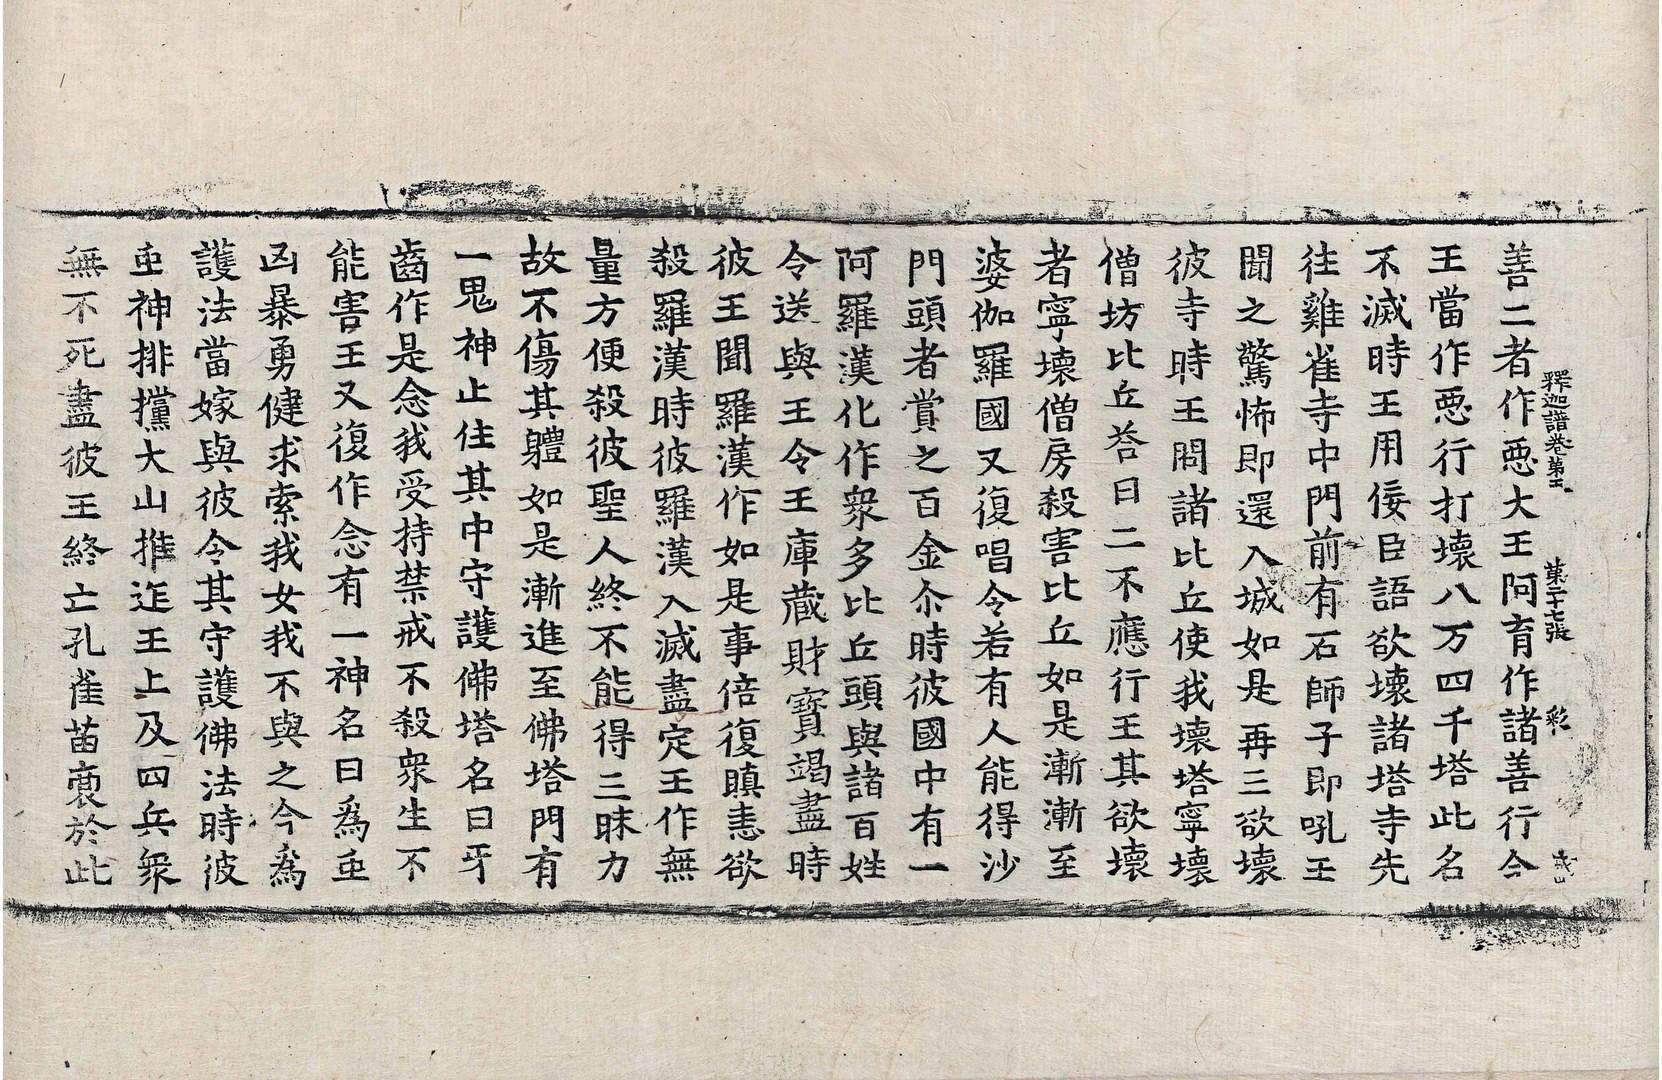 釋迦譜卷第五 第二十七張 彩
善二者作惡大王阿育作諸善行今
王當作惡行打壞八万四千塔此名
不滅時王用佞臣語欲壞諸塔寺先
往雞雀寺中門前有石師子即吼王
聞之驚怖即還入城如是再三欲壞
彼寺時王問諸比丘使我壞塔寧壞
僧坊比丘荅曰二不應行王其欲壞
者寧壞僧房殺害比丘如是漸漸至
婆伽羅國又復唱令若有人能得沙
門頭者賞之百金尒時彼國中有一
阿羅漢化作衆多比丘頭與諸百姓
令送與王令王庫藏財寶竭盡時
彼王聞羅漢作如是事倍復瞋恚欲
殺羅漢時彼羅漢入滅盡定王作無
量方便殺彼聖人終不能得三昧力
故不傷其體如是漸進至佛塔門有
一鬼神止住其中守護佛塔名曰牙
齒作是念我受持禁戒不殺衆生不
能害王又復作念有一神名曰爲䖝
凶暴勇健求索我女我不與之今爲
護法當嫁與彼令其守護佛法時彼
䖝神排攩大山推迮王上及四兵衆
無不死盡彼王終亡孔雀苗裔於此